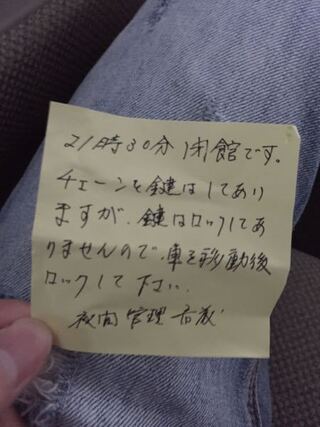 21時30分 閉館です。
チェーンと鍵はしてあり
ますが、鍵はロックしてあ
りませんので、車を移動後
ロックして下さい。
夜間管理